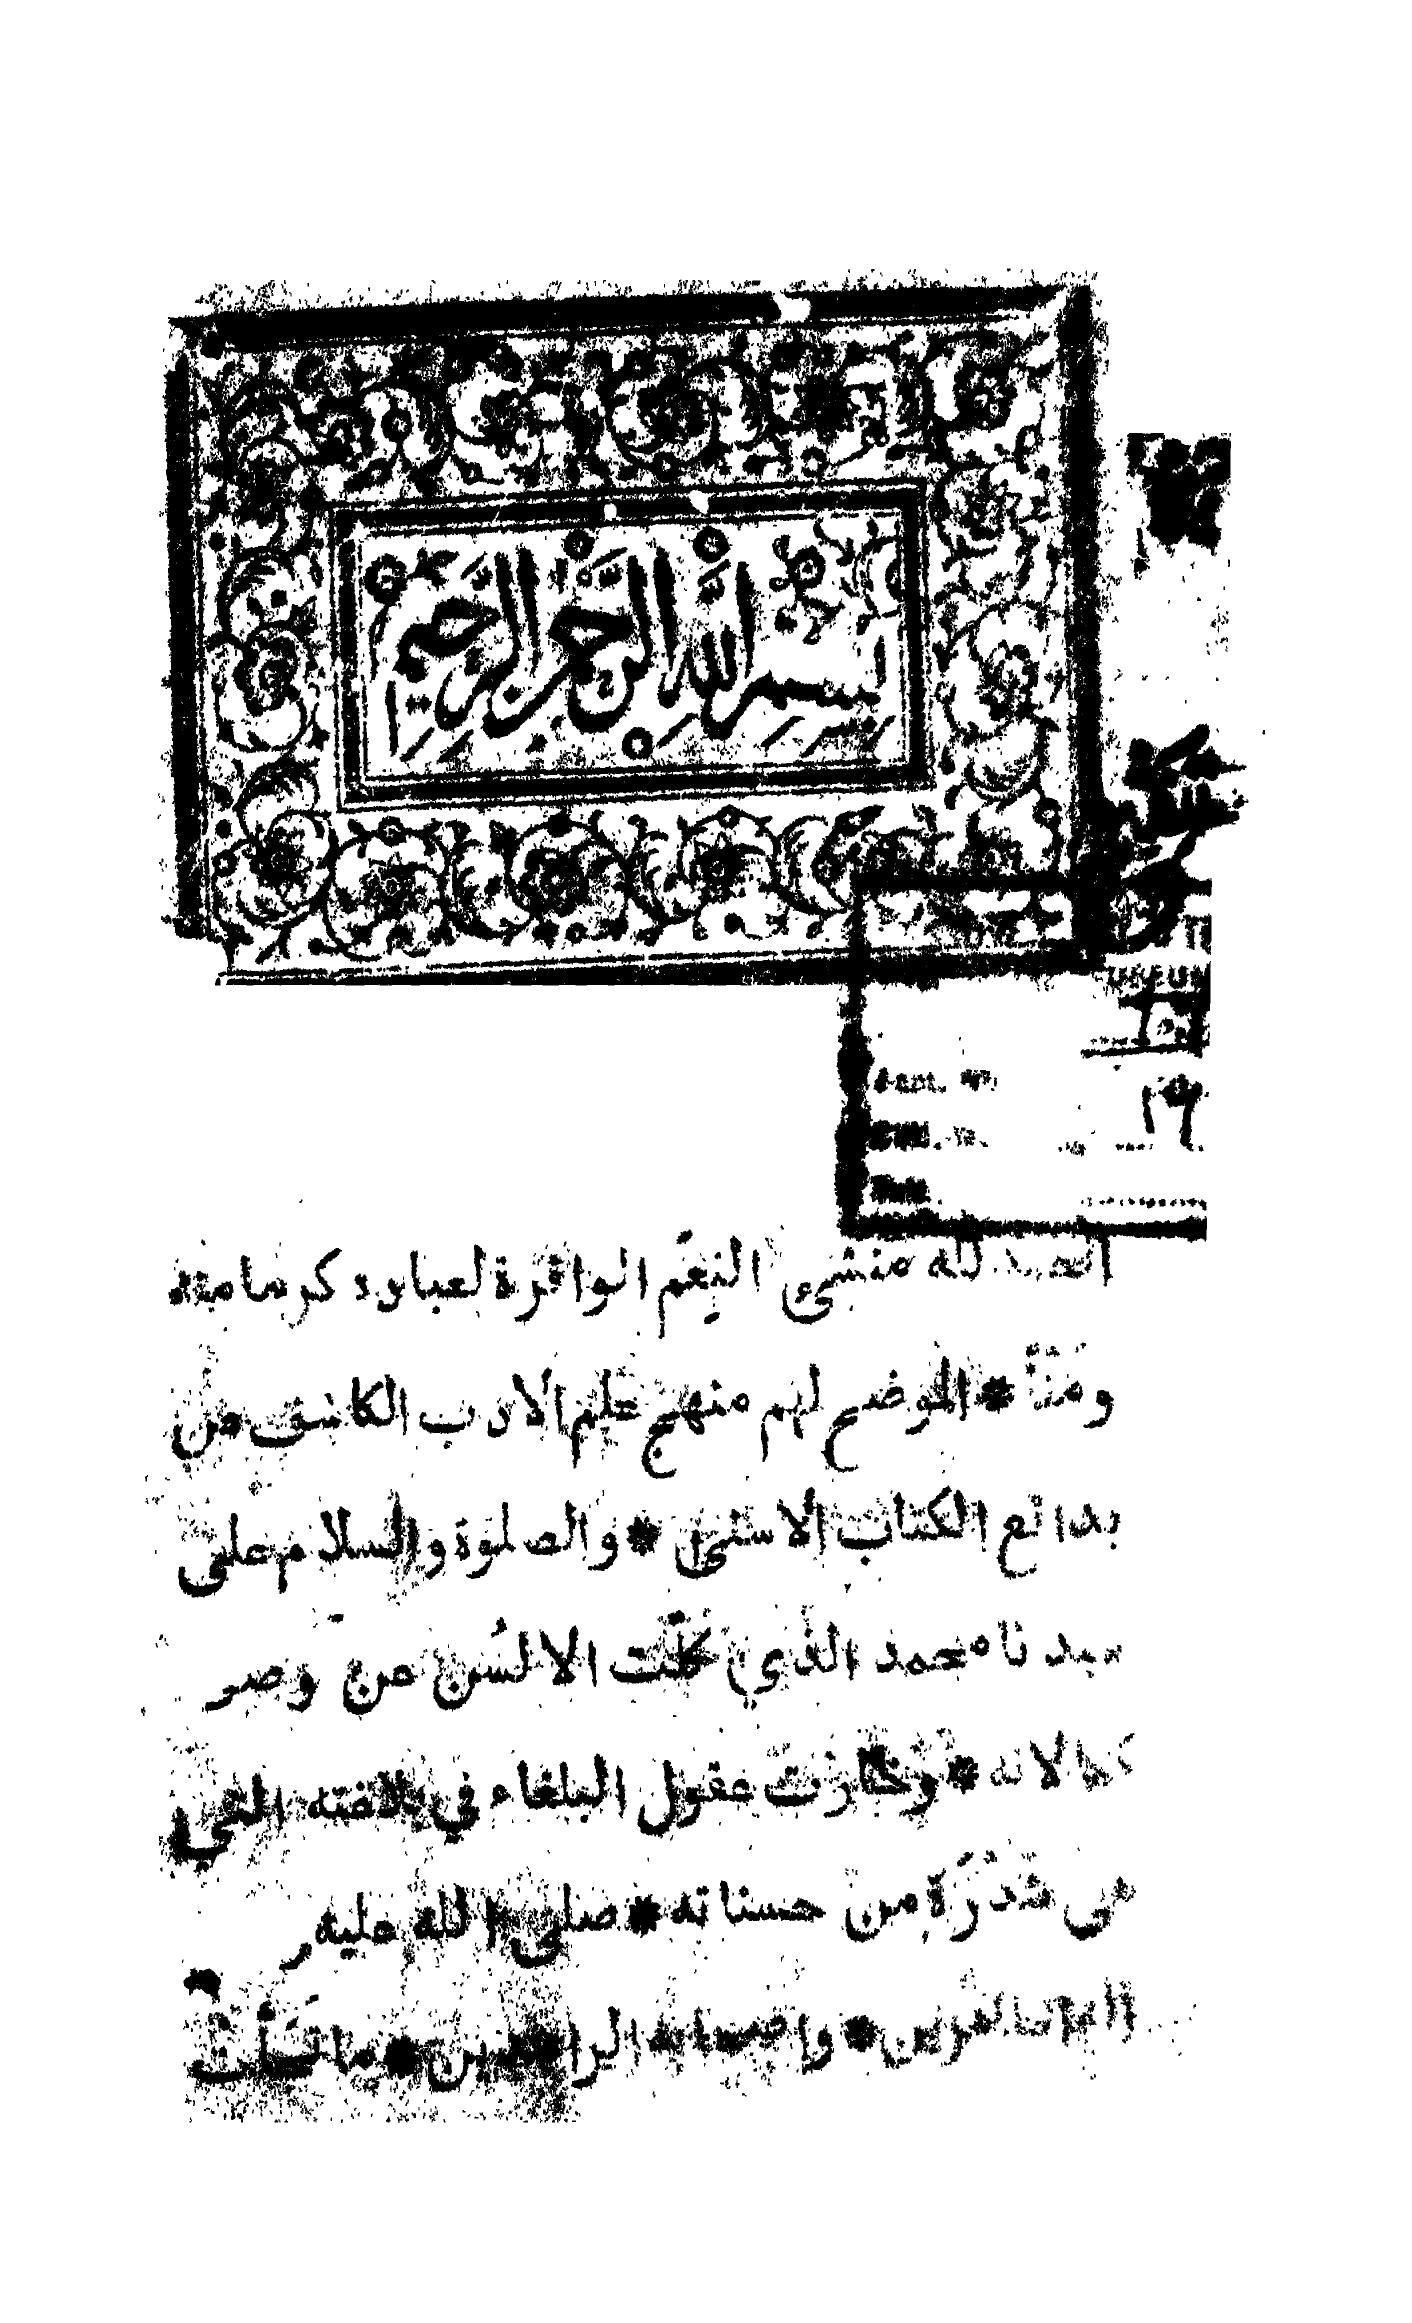 بسم الله الرحمن الرحيم
الحمد لله منشئ النعم الوافرة لعباده كرما منه
ومنا * الموضح لهم منهج علم الادب الكاشف عن
بدائع الكتاب الاسنى * والصلوة والسلام على
سيدنا محمد الذي كلّت الالسُن عن وصر
كمالاته * وحارت عقول البلغاء في بلاغته التي
هي شذرة من حسناته * صلى الله عليه و
الطاهرين * واصحابه الراشدين *